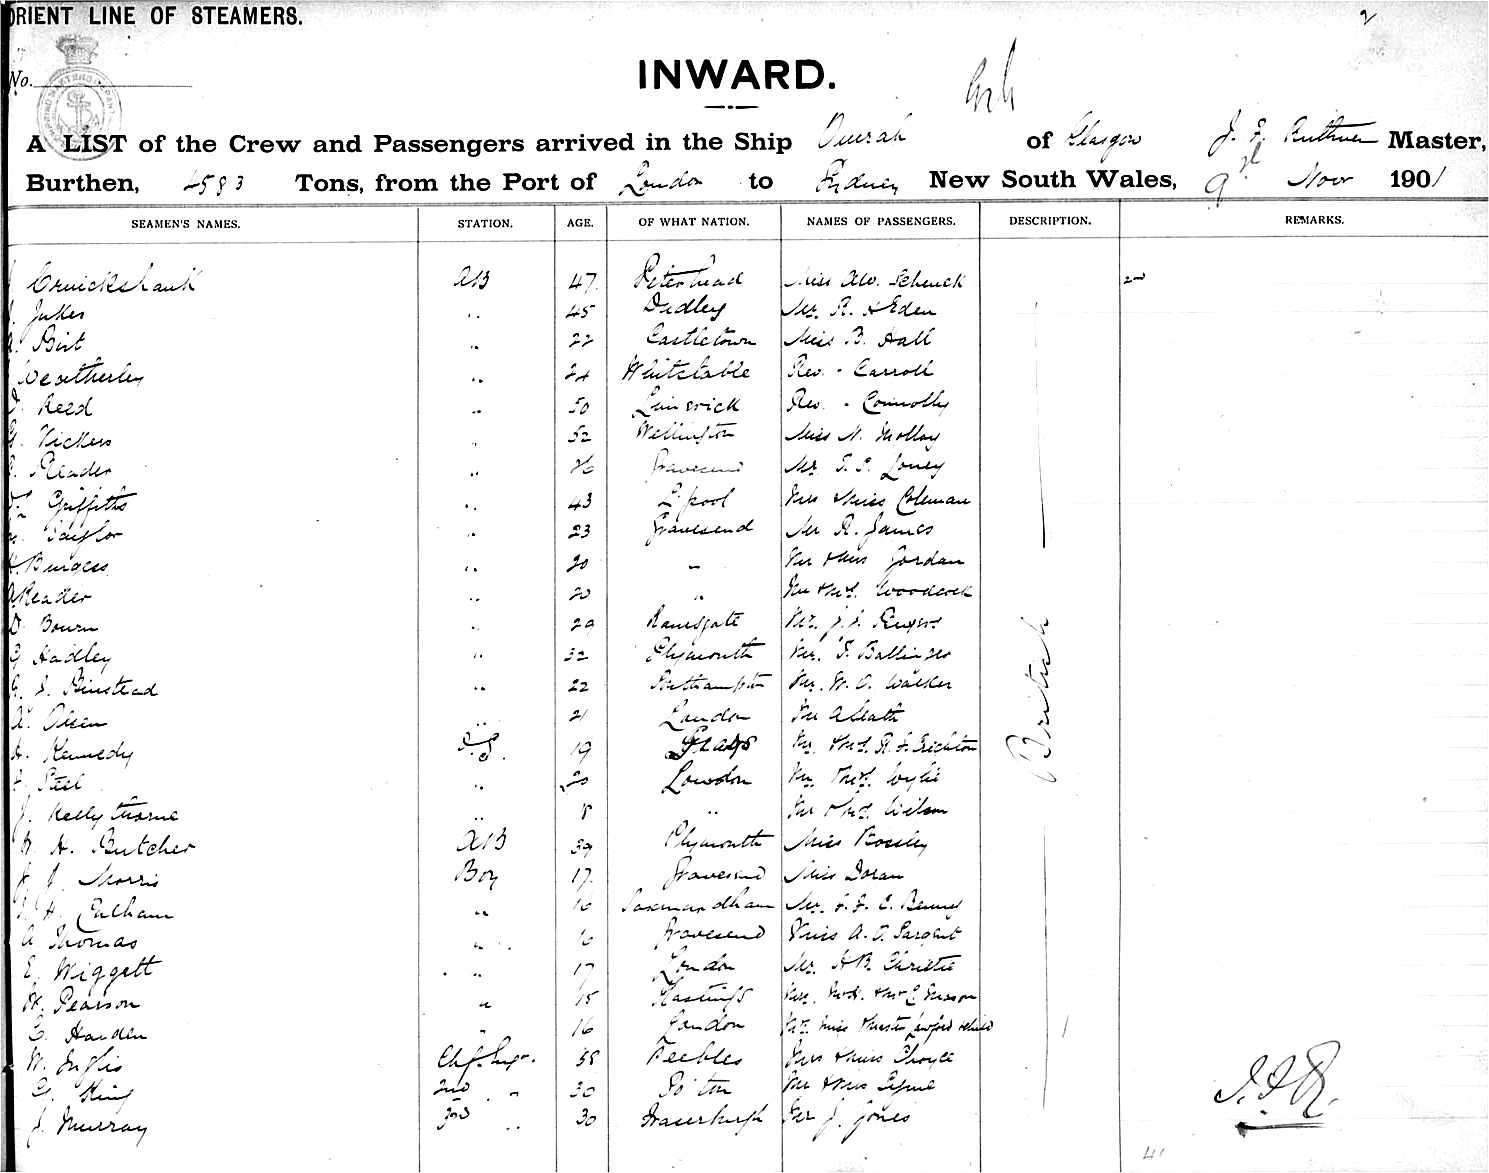 ORIENT LINE OF STEAMERS.
2
No.
INWARD.
A LIST of the Crew and Passengers arrived in the Ship Omrah of Glasgow J. F. Ruthven Master,
Burthen, 4583 Tons, from the Port of London to Sydney New South Wales, 9th Novr 1901
SEAMEN'S NAMES. STATION. AGE. OF WHAT NATION. NAMES OF PASSENGERS. DESCRIPTION. REMARKS.
Cruickshank AB 47 Peterhead Miss Schenck
Jukes " 45 Dudley Mr. R. Eden
Birt " 22 Castletown Miss B. Hall
Weatherley " 24 Whitstable Rev. - Carroll
Reed " 50 Limerick Rev. - Connolly
G. Vickers " 52 Wellington Miss N. Molloy
Reader " 26 Gravesend Mr Loney
Griffiths " 43 L'pool Mrs & Miss Coleman
Taylor " 23 Gravesend Mr R. James
Burgess " 20 " Mr & Mrs Jordan
Reader " 20 " Mr & Mrs Woodcock
D. Bourn " 29 Ramsgate Mr. J. J. Rogers
G Hadley " 32 Plymouth Mr. F. Ballinger
Binstead " 22 Southampton Mr. W. O. Walker
Olsen " 21 London Mr
H. Kennedy O.S. 19 Grays Mr. & Mrs R. Crichton
Peel " 20 London Mr. & Mrs. Wylie
J. Kellythorne " " Mr & Mrs Wilson
H. Butcher AB 39 Plymouth Miss Bossley
J. Morris Boy 17 Gravesend Miss Doran
H. Fulham " 16 Saxmundham Mr. Benny
A Thomas " 16 Gravesend Miss A. O. Sargent
E. Wiggett " 17 London Mr. H B. Christie
H. Pearson " 15 Hastings
C. Harden " 16 London
W. Inglis Chf. Engr. 58 Peebles Mrs & Miss Choyce
G. King 2nd " 30 Bolton Mr & Mrs Tyme
J. Murray 3rd " 30 Fraserburgh Mr J. Jones
British
J.F.R.
41